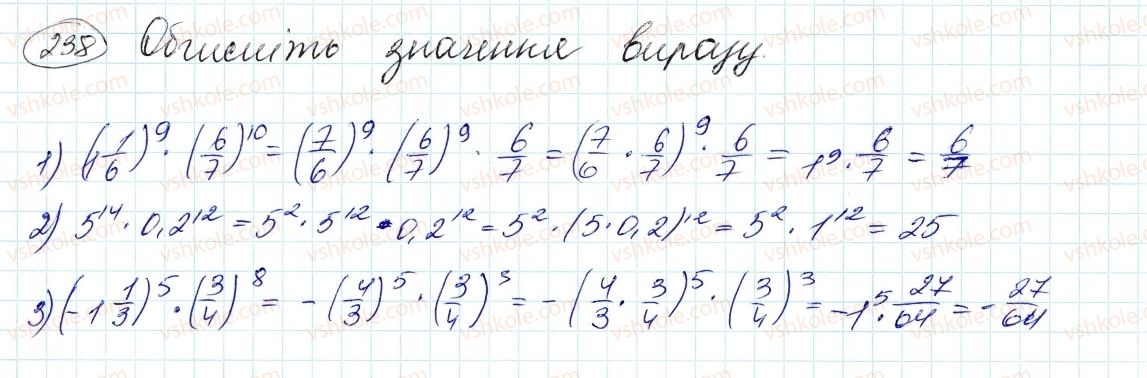 238 Обчисліть значення виразу.
1) (1 1/6)^9 · (6/7)^10 = (7/6)^9 · (6/7)^9 · 6/7 = (7/6 · 6/7)^9 · 6/7 = 1^9 · 6/7 = 6/7
2) 5^14 · 0,2^12 = 5^2 · 5^12 · 0,2^12 = 5^2 · (5·0,2)^12 = 5^2 · 1^12 = 25
3) (-1 1/3)^5 · (3/4)^8 = -(4/3)^5 · (3/4)^3 = -(4/3 · 3/4)^5 · (3/4)^3 = -1^5 · 27/64 = -27/64